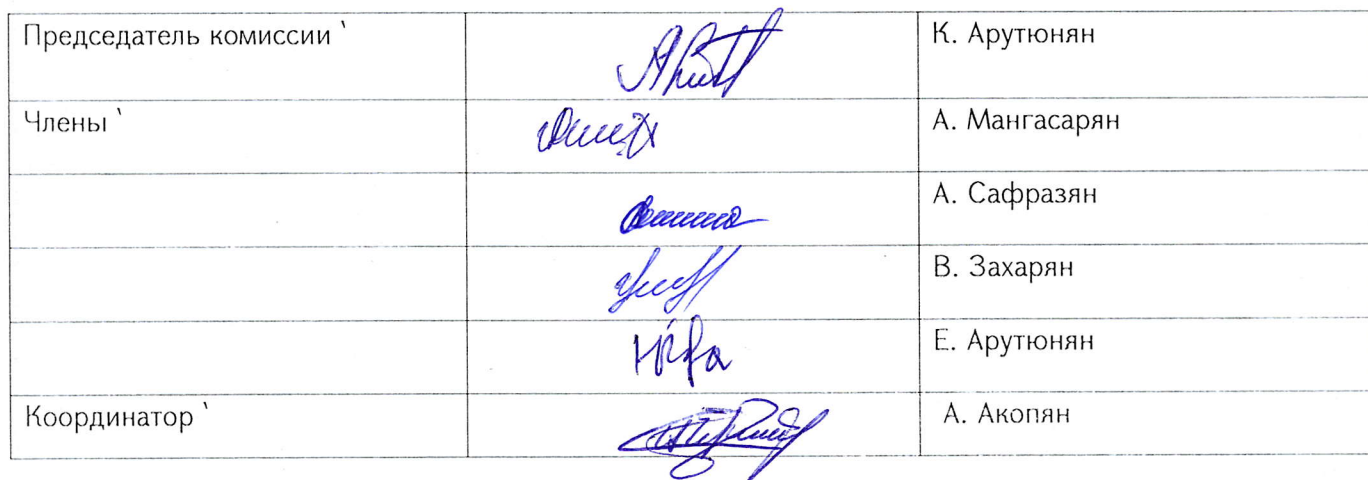 Председатель комиссии ՝ К. Арутюнян
Члены ՝ А. Мангасарян
А. Сафразян
В. Захарян
Е. Арутюнян
Координатор ՝ А. Акопян